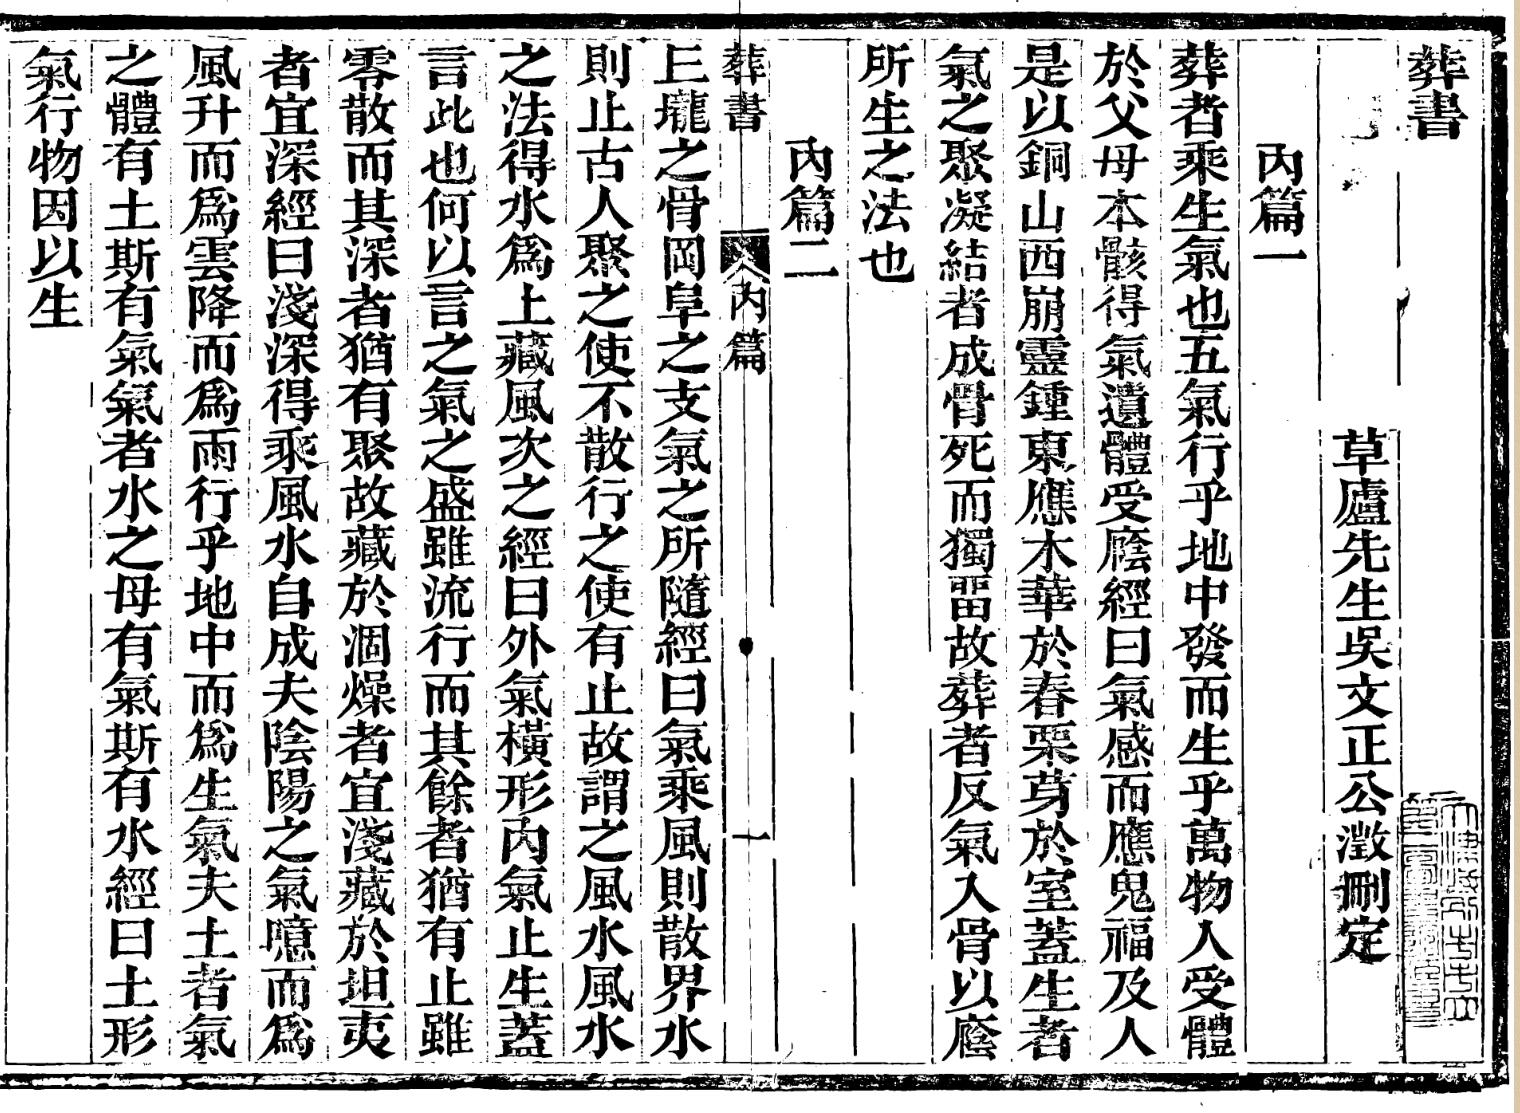 葬書
草廬先生吳文正公澂刪定
內篇一
葬者乘生氣也五氣行乎地中發而生乎萬物人受體
於父母本骸得氣遺體受廕經曰氣感而應鬼福及人
是以銅山西崩靈鍾東應木華於春栗芽於室蓋生者
氣之聚凝結者成骨死而獨畱故葬者反氣入骨以廕
所生之法也
內篇二
葬書
內篇
一
丘壠之骨岡阜之支氣之所隨經曰氣乘風則散界水
則止古人聚之使不散行之使有止故謂之風水風水
之法得水爲上藏風次之經曰外氣橫形內氣止生蓋
言此也何以言之氣之盛雖流行而其餘者猶有止雖
零散而其深者猶有聚故藏於涸燥者宜淺藏於坦夷
者宜深經曰淺深得乘風水自成夫陰陽之氣噫而爲
風升而爲雲降而爲雨行乎地中而爲生氣夫土者氣
之體有土斯有氣氣者水之母有氣斯有水經曰土形
氣行物因以生